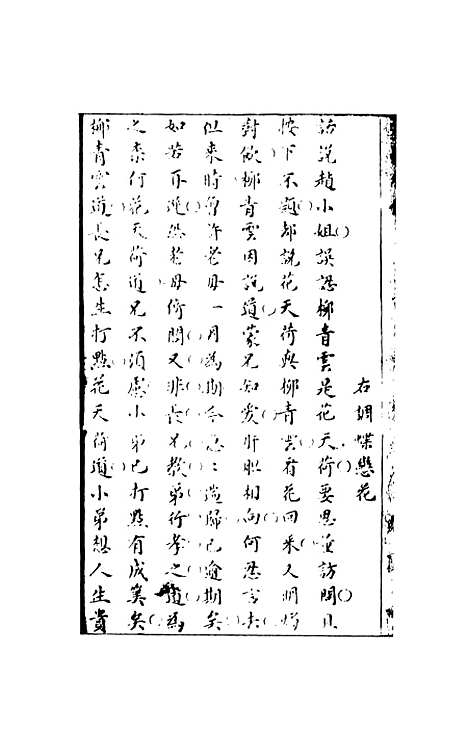 右調蝶戀花
話說趙小姐誤認柳青雲是花天荷要思量訪問且
按下不題却說花天荷與柳青雲有花同采又明燭
對飲柳青雲因說道蒙兄知愛肝胆相向何忍言去
但來時曾許老母一月為期今急急造歸已逾期矣
如若再遲恐老母倚閭又非長兄教弟行孝之道為
之柰何花天荷道兄不須慮小弟已打點有成算矣
柳青雲道長兄怎生打點花天荷道小弟想人生貴